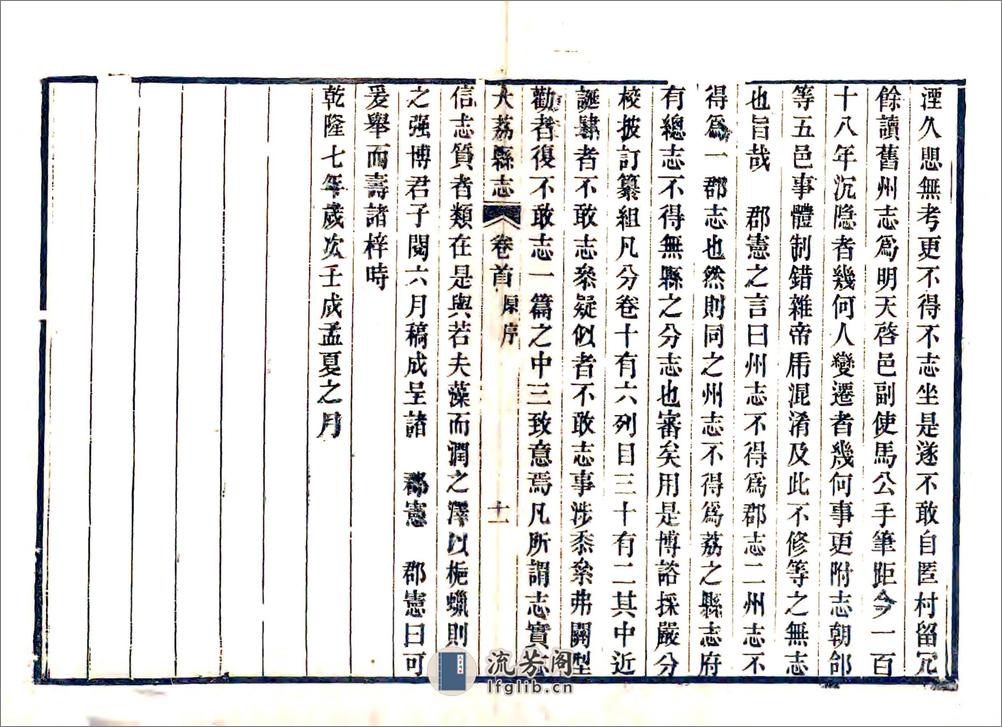 湮久思無考更不得不志坐是遂不敢自匿村留冗
餘讀舊州志爲明天啓邑副使馬公手筆距今一百
十八年沉隐者幾何人變遷者幾何事更附志朝邰
等五邑事體制錯雜帝乕混淆及此不修等之無志
也旨哉　郡憲之言曰州志不得爲郡志二州志不
得爲一郡志也然則同之州志不得爲荔之縣志府
有總志不得無縣之分志也審矣用是博諮採嚴分
校披訂纂組凡分卷十有六列目三十有二其中近
誕肆者不敢志叅疑似者不敢志事涉黍絫弗關型
勸者復不敢志一篇之中三致意焉凡所謂志實志
大荔縣志　卷首　原序　十一
信志質者類在是與若夫藻而潤之澤以梔蠟則
之强博君子閱六月稿成呈諸　郡憲　郡憲曰可
爰舉而壽諸梓時
乾隆七年歲次壬戌孟夏之月
流芳阁
lfglib.cn